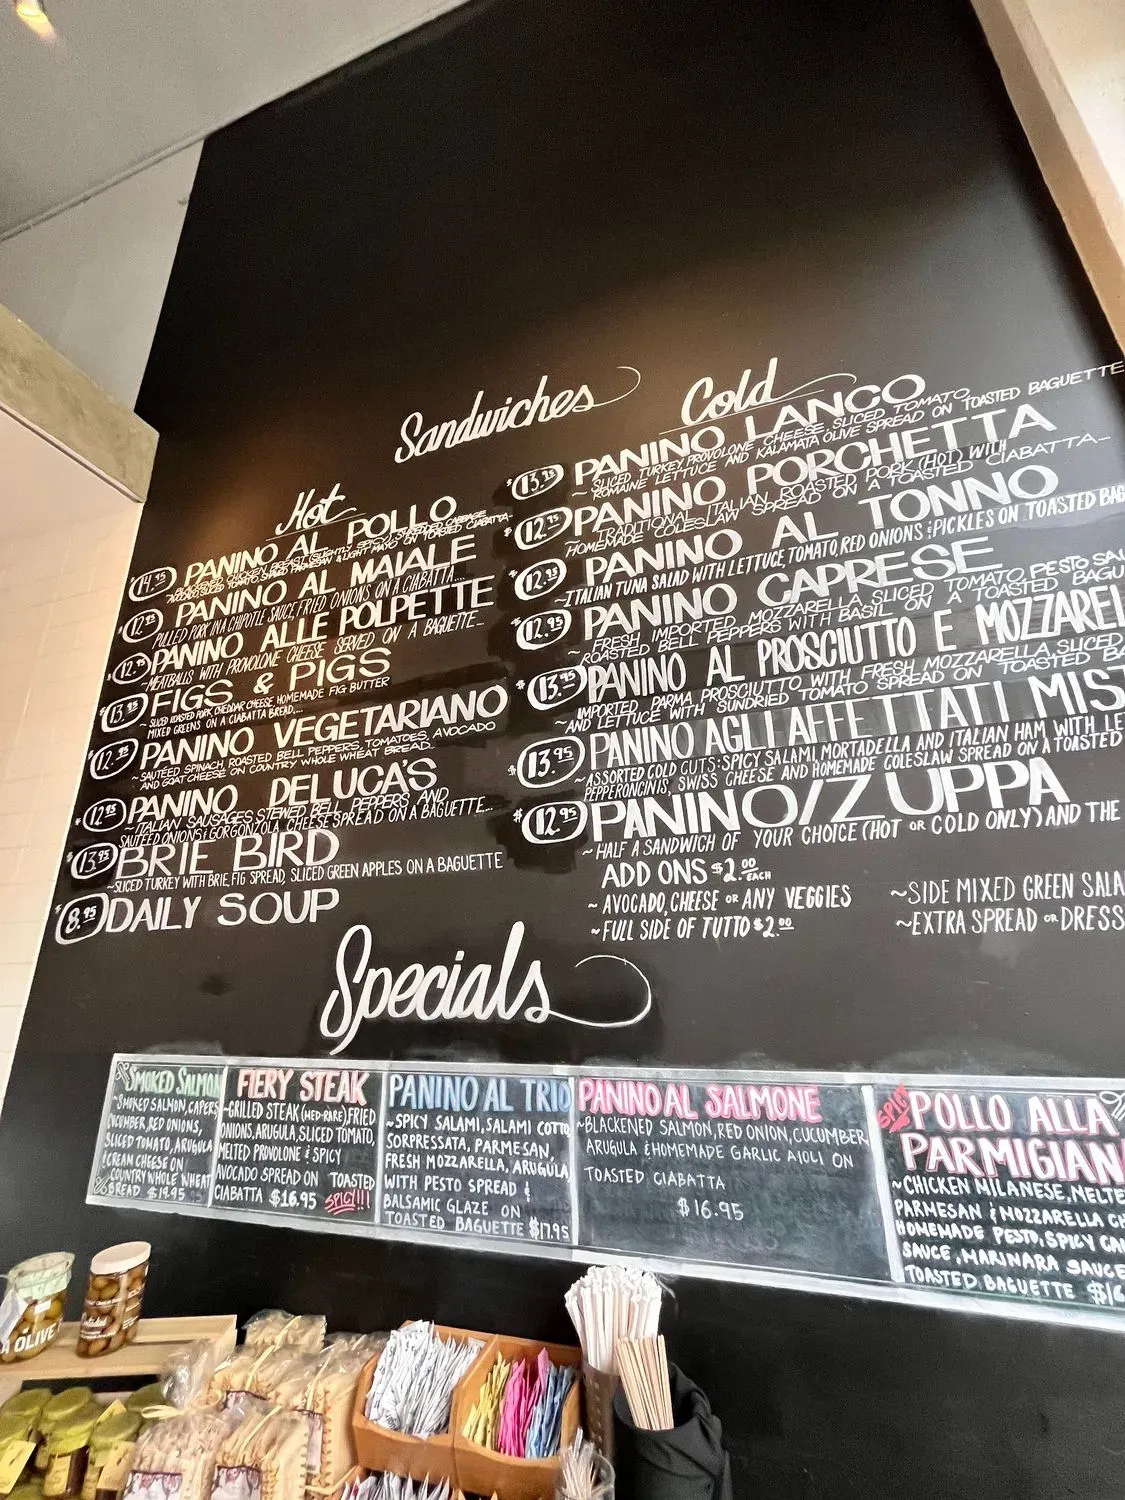 Sandwiches
Hot
$14.95 PANINO AL POLLO
BREAST (SLIGHTLY SPICY), SHREDDED CABBAGE,
& LIGHT MAYO ON TOASTED CIABATTA~
PANINO AL MAIALE
PULLED PORK IN A CHIPOTLE SAUCE, FRIED ONIONS ON A CIABATTA....
PANINO ALLE POLPETTE
~MEATBALLS WITH PROVOLONE CHEESE SERVED ON A BAGUETTE...
$13.95 FIGS & PIGS
~SLICED ROASTED PORK, CHEDDAR CHEESE, HOMEMADE FIG BUTTER
MIXED GREENS ON A CIABATTA BREAD...
$12.95 PANINO VEGETARIANO
~SAUTÉED SPINACH, ROASTED BELL PEPPERS, TOMATOES, AVOCADO
AND GOAT CHEESE ON COUNTRY WHOLE WHEAT BREAD.
$12.95 PANINO DELUCA'S
~ITALIAN SAUSAGES STEWED BELL PEPPERS, AND
SAUTÉED ONIONS & GORGONZOLA CHEESE SPREAD ON A BAGUETTE...
$13.95 BRIE BIRD
~SLICED TURKEY WITH BRIE, FIG SPREAD, SLICED GREEN APPLES ON A BAGUETTE
$8.95 DAILY SOUP
Cold
$13.95 PANINO LANCO
~SLICED TURKEY, PROVOLONE CHEESE, SLICED TOMATO,
ROMAINE LETTUCE AND KALAMATA OLIVE SPREAD ON TOASTED BAGUETTE
$12.95 PANINO PORCHETTA
~TRADITIONAL ITALIAN ROASTED PORK (HOT) WITH
HOMEMADE COLESLAW SPREAD ON A TOASTED CIABATTA~
$12.95 PANINO AL TONNO
~ITALIAN TUNA SALAD WITH LETTUCE, TOMATO, RED ONIONS & PICKLES ON TOASTED BAG
$12.95 PANINO CAPRESE
~FRESH IMPORTED MOZZARELLA, SLICED TOMATO, PESTO SAU
ROASTED BELL PEPPERS WITH BASIL ON A TOASTED BAGU
$13.95 PANINO AL PROSCIUTTO E MOZZAREL
~IMPORTED PARMA PROSCIUTTO WITH FRESH MOZZARELLA, SLICED
AND LETTUCE WITH SUNDRIED TOMATO SPREAD ON TOASTED BA
$13.95 PANINO AGLI AFFETTATI MIS
~ASSORTED COLD CUTS: SPICY SALAMI, MORTADELLA AND ITALIAN HAM WITH LE
PEPPERONCINIS, SWISS CHEESE AND HOMEMADE COLESLAW SPREAD ON A TOASTED
$12.95 PANINO/ZUPPA
~HALF A SANDWICH OF YOUR CHOICE (HOT OR COLD ONLY) AND THE
ADD ONS $2.00 EACH
~AVOCADO, CHEESE OR ANY VEGGIES
~FULL SIDE OF TUTTO $2.00
~SIDE MIXED GREEN SALA
~EXTRA SPREAD OR DRESS
Specials
SMOKED SALMON
~SMOKED SALMON, CAPERS
CUCUMBER, RED ONIONS,
SLICED TOMATO, ARUGULA
& CREAM CHEESE ON
COUNTRY WHOLE WHEAT
BREAD $14.95
FIERY STEAK
~GRILLED STEAK (MED-RARE), FRIED
ONIONS, ARUGULA, SLICED TOMATO,
MELTED PROVOLONE & SPICY
AVOCADO SPREAD ON TOASTED
CIABATTA $16.95 SPICY!!!
PANINO AL TRIO
~SPICY SALAMI, SALAMI COTTO,
SORPRESSATA, PARMESAN,
FRESH MOZZARELLA, ARUGULA,
WITH PESTO SPREAD &
BALSAMIC GLAZE ON
TOASTED BAGUETTE $17.95
PANINO AL SALMONE
~BLACKENED SALMON, RED ONION, CUCUMBER,
ARUGULA & HOMEMADE GARLIC AIOLI ON
TOASTED CIABATTA
$16.95
SPICY POLLO ALLA
PARMIGIAN
~CHICKEN MILANESE, MELTE
PARMESAN & MOZZARELLA CH
HOMEMADE PESTO, SPICY CA
SAUCE, MARINARA SAUCE
TOASTED BAGUETTE $16
OLIVE